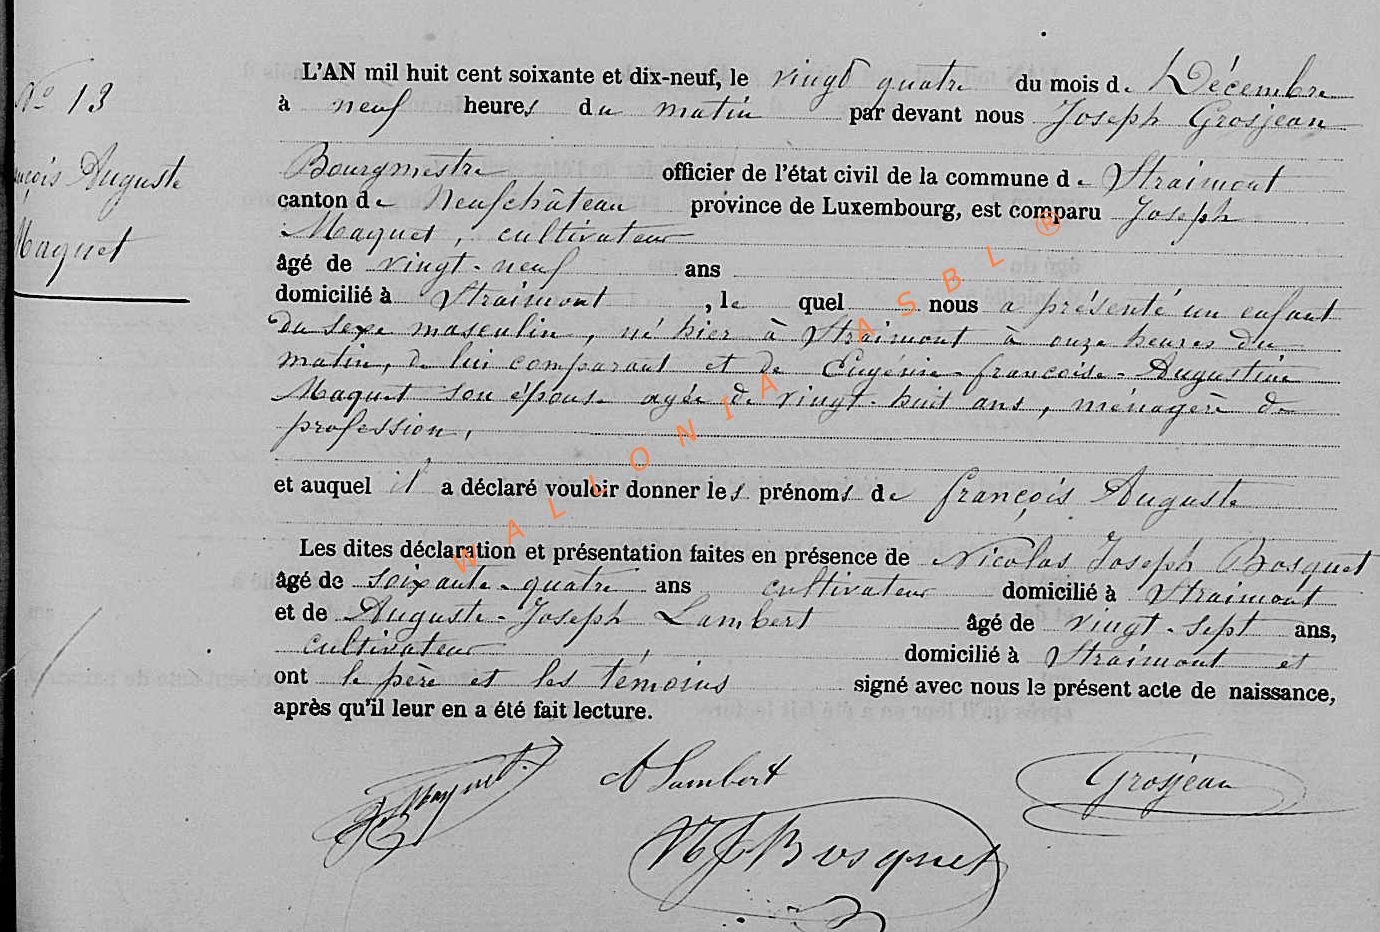 N° 13
L'AN mil huit cent soixante et dix-neuf, le vingt quatre du mois de Décembre
à neuf heures du matin par devant nous Joseph Grosjean
Bourgmestre officier de l'état civil de la commune de Straimont
canton de Neufchâteau province de Luxembourg, est comparu Joseph
Maquet, cultivateur
âgé de vingt-neuf ans
domicilié à Straimont, lequel nous a présenté un enfant
du sexe masculin, né hier à Straimont à onze heures du
matin, de lui comparant et de Eugénie-françoise-Augustine
Maquet son épouse agée de vingt-huit ans, ménagère de
profession,
et auquel il a déclaré vouloir donner les prénoms de françois Auguste
Les dites déclaration et présentation faites en présence de Nicolas Joseph Bosquet
âgé de soixante-quatre ans cultivateur domicilié à Straimont
et de Auguste-Joseph Lambert âgé de vingt-sept ans,
cultivateur, domicilié à Straimont et
ont le père et les témoins signé avec nous le présent acte de naissance,
après qu'il leur en a été fait lecture.
nçois Auguste
Maquet
J. Maquet. A Lambert Grosjean
NJ Bosquet
WALLONIA ASBL ®